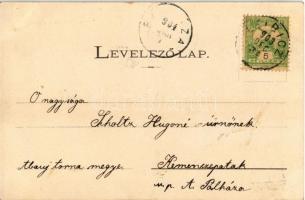 LEVELEZŐ-LAP.
Ő nagysága
Scholtz Hugoné úrnőnek
Abauj torna megye. Kemenczepatak
u.p. A. Pálháza